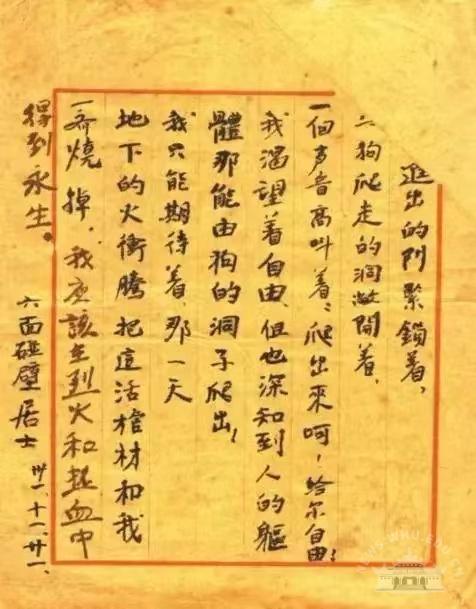 出的門緊鎖着，
狗爬走的洞敞開着，
一個声音高叫着：爬出來呵！给尔自由！
我渴望着自由，但也深知到人的軀
體那能由狗的洞子爬出！
我只能期待着，那一天
地下的火衝騰把這活棺材和我
一齊燒掉，我应該在烈火和热血中
得到永生。
六面碰壁居士 卅一、十一、廿一、
NEWS.WHU.EDU.CN